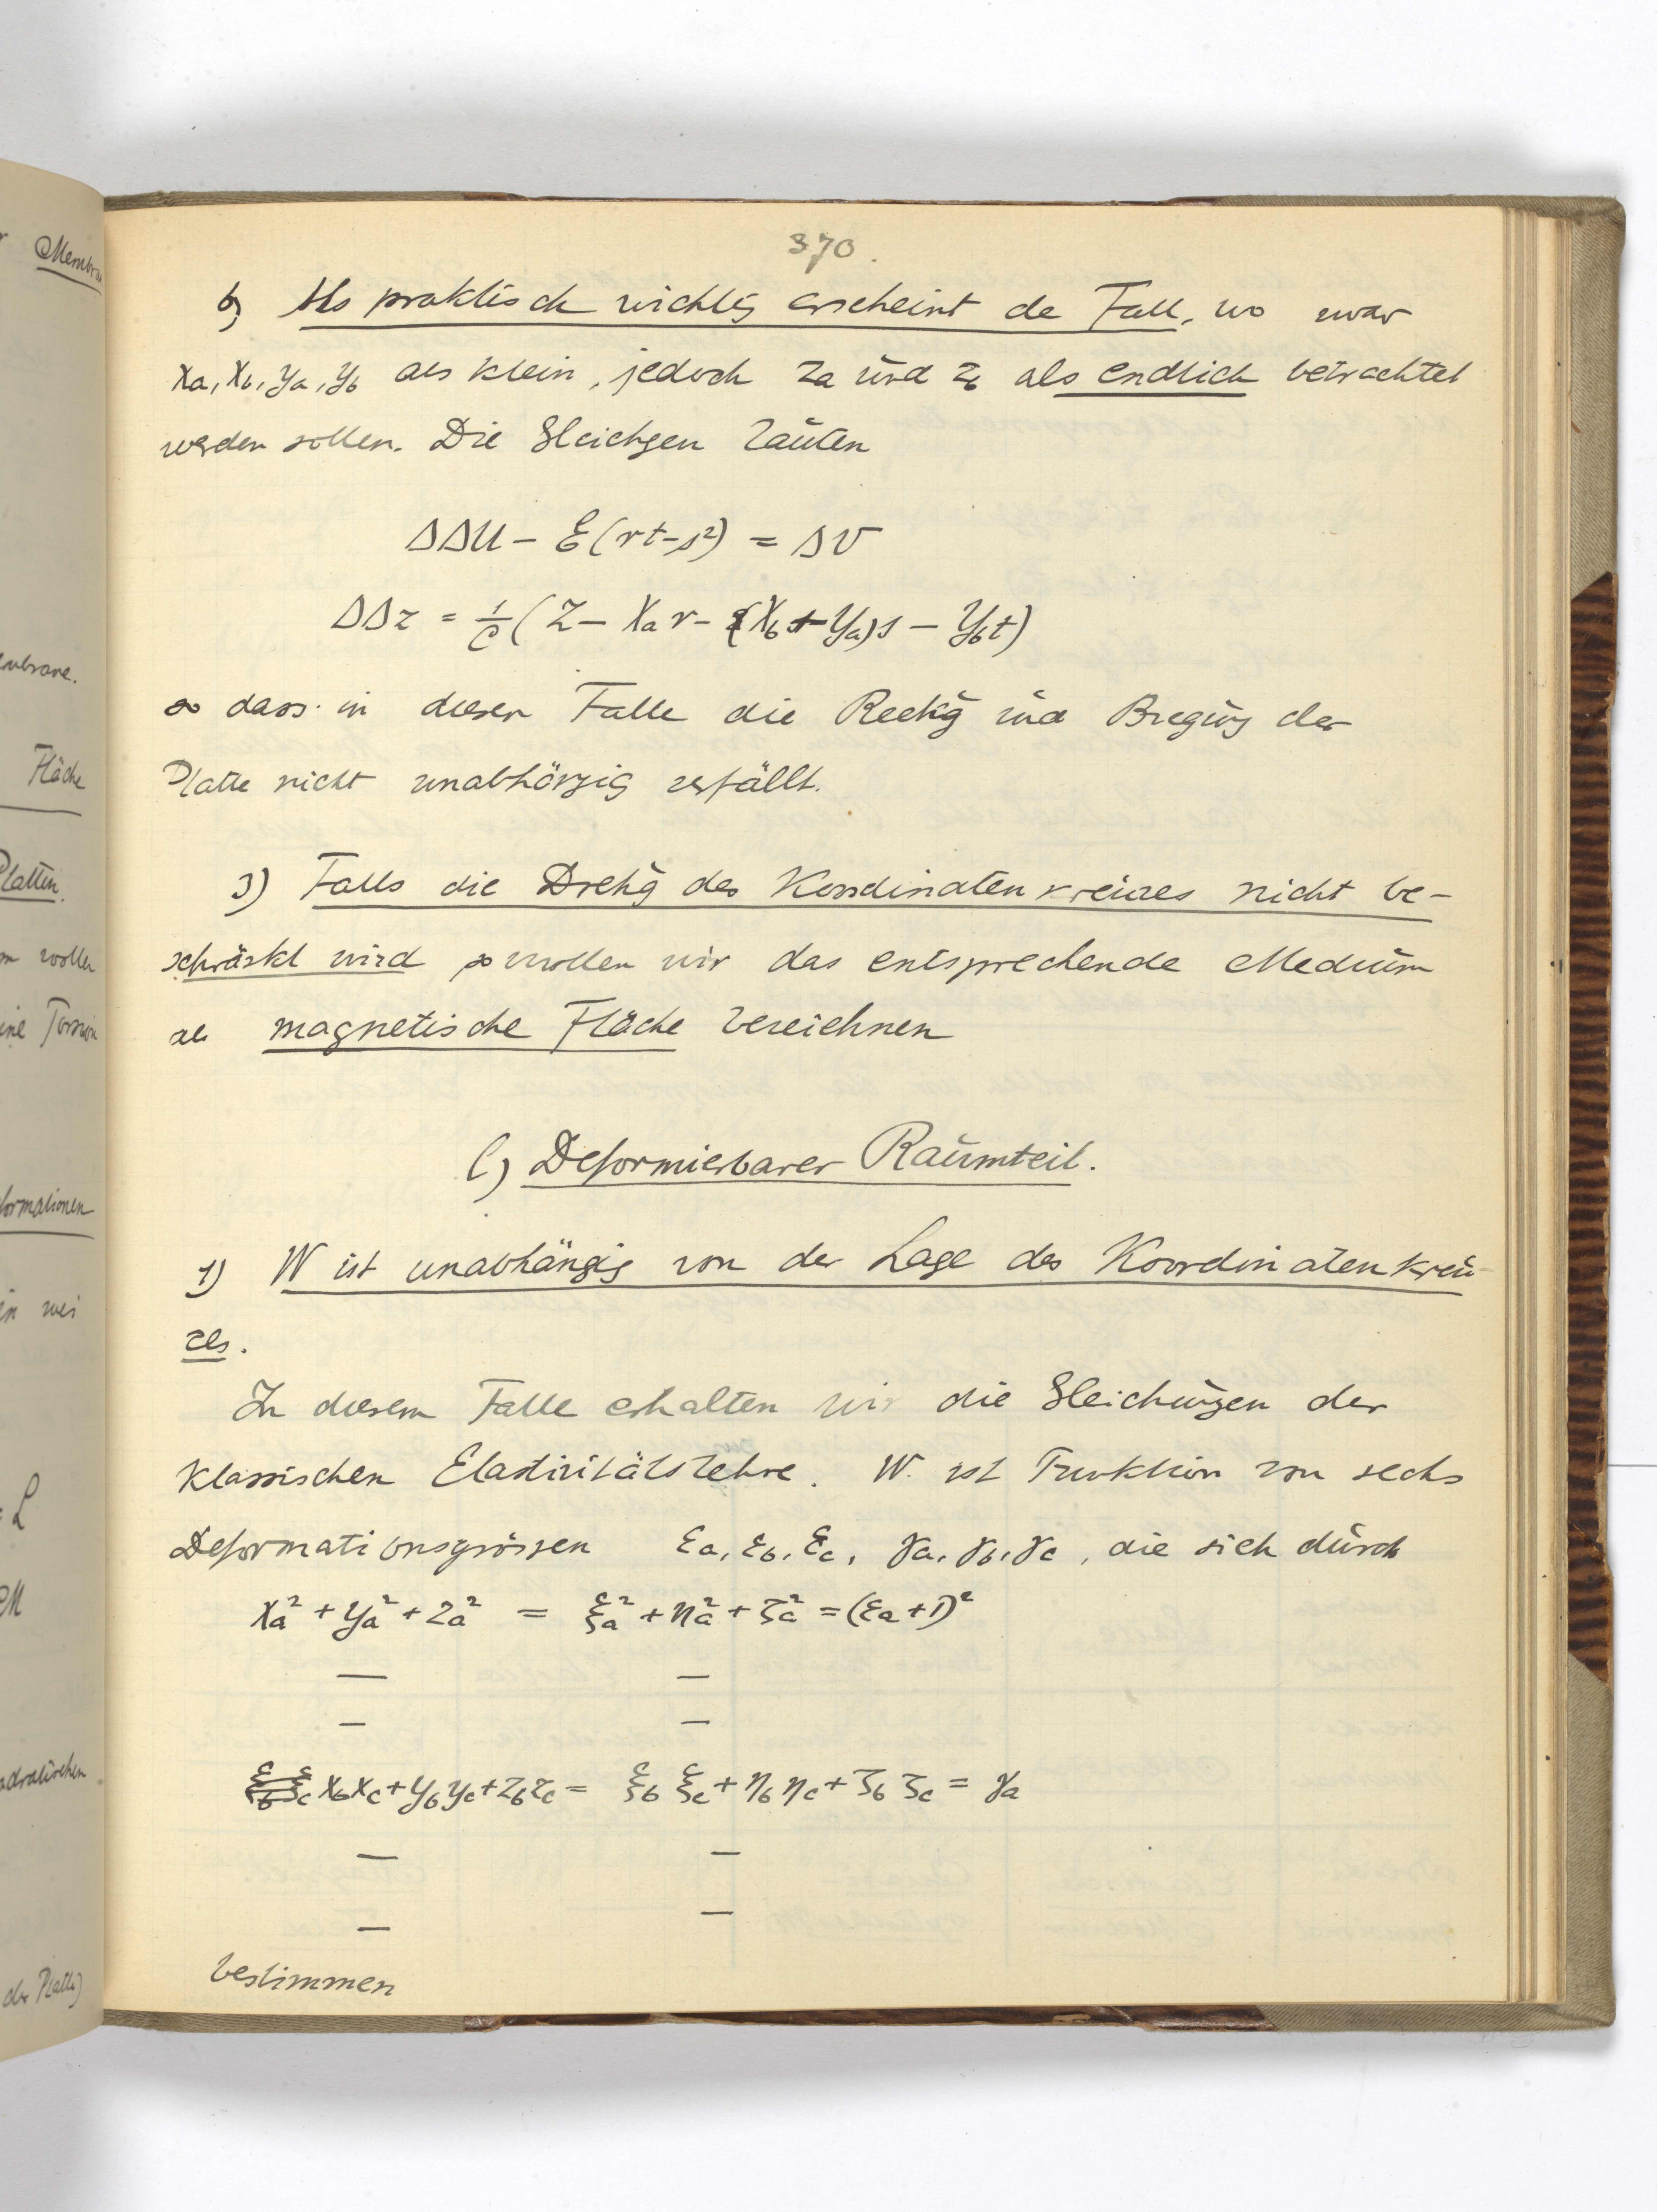 370.
b) Als praktisch wichtig erscheint de Fall, wo zwar
Xa, Xb, ya, yb als klein, jedoch za und zb als endlich betrachtet
werden sollen. Die Gleichgen lauten
ΔΔU − ℰ(rt−s²) = ΔV
ΔΔz = 1/C (Z − Xa r − (Xb + Ya)s − Yb t)
so dass in diesen Falle die Reckg und Biegung der
Platte nicht unabhängig zerfällt.
3) Falls die Drehg des Koordinatenkreuzes nicht be-
schränkt wird so wollen wir das entsprechende Medium
als magnetische Fläche bezeichnen
C) Deformierbarer Raumteil.
1) W ist unabhängig von der Lage des Koordinatenkreu-
zes.
In diesem Falle erhalten wir die Gleichungen der
klassischen Elastizitätslehre. W. ist Funktion von sechs
Deformationsgrössen εa, εb, εc, γa, γb, γc, die sich durch
xa² + ya² + za² = ξa² + ηa² + ζa² = (εa+1)²
— —
— —
xb xc + yb yc + zb zc = ξb ξc + ηb ηc + ζb ζc = γa
— —
— —
bestimmen
Membra
embrane.
Fläche
Platten.
m wollen
ine Torsion
formationen
in wei
= L
M
adratischen
der Platte)